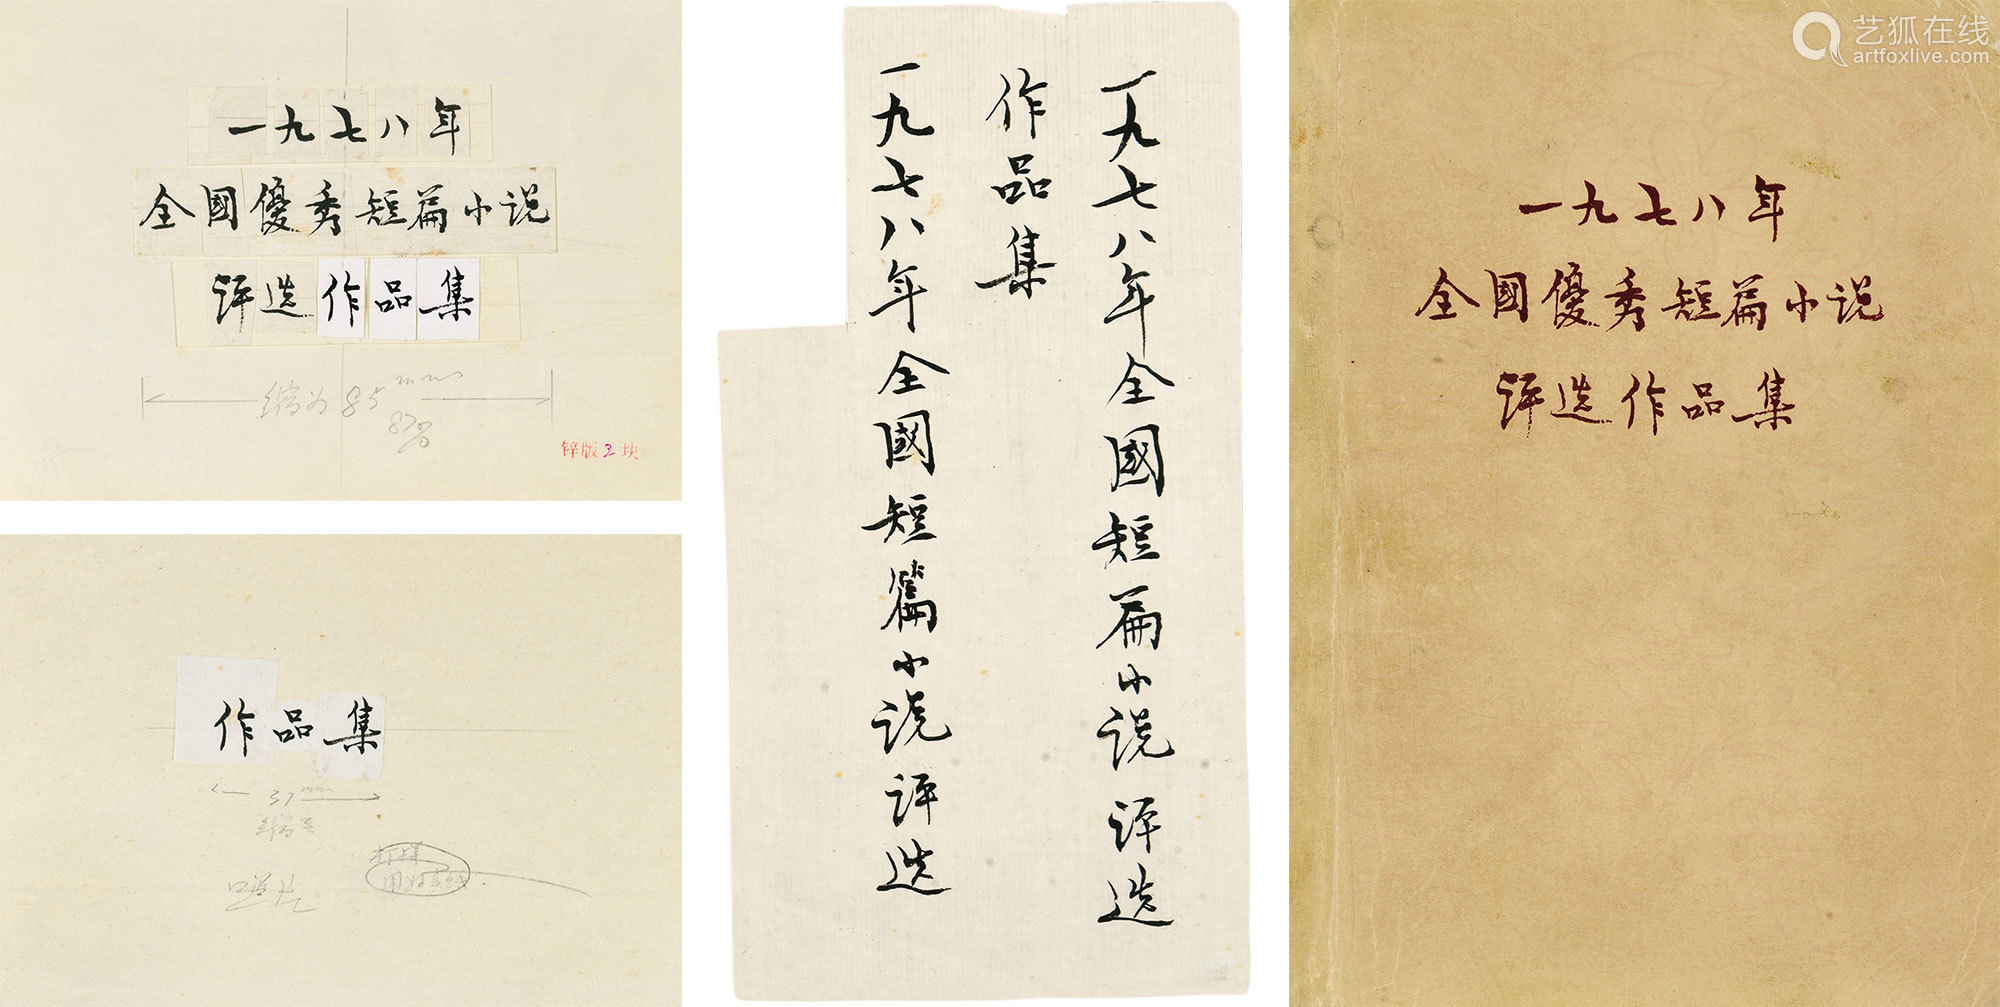 一九七八年
全國優秀短篇小说
评选作品集
缩为85mm
87%
锌版2块
作品集
37mm
缩至
打样
一九七八年全國短篇小说评选
作品集
一九七八年全國短篇小说评选
艺狐在线
artfoxlive.com
一九七八年
全國優秀短篇小说
评选作品集